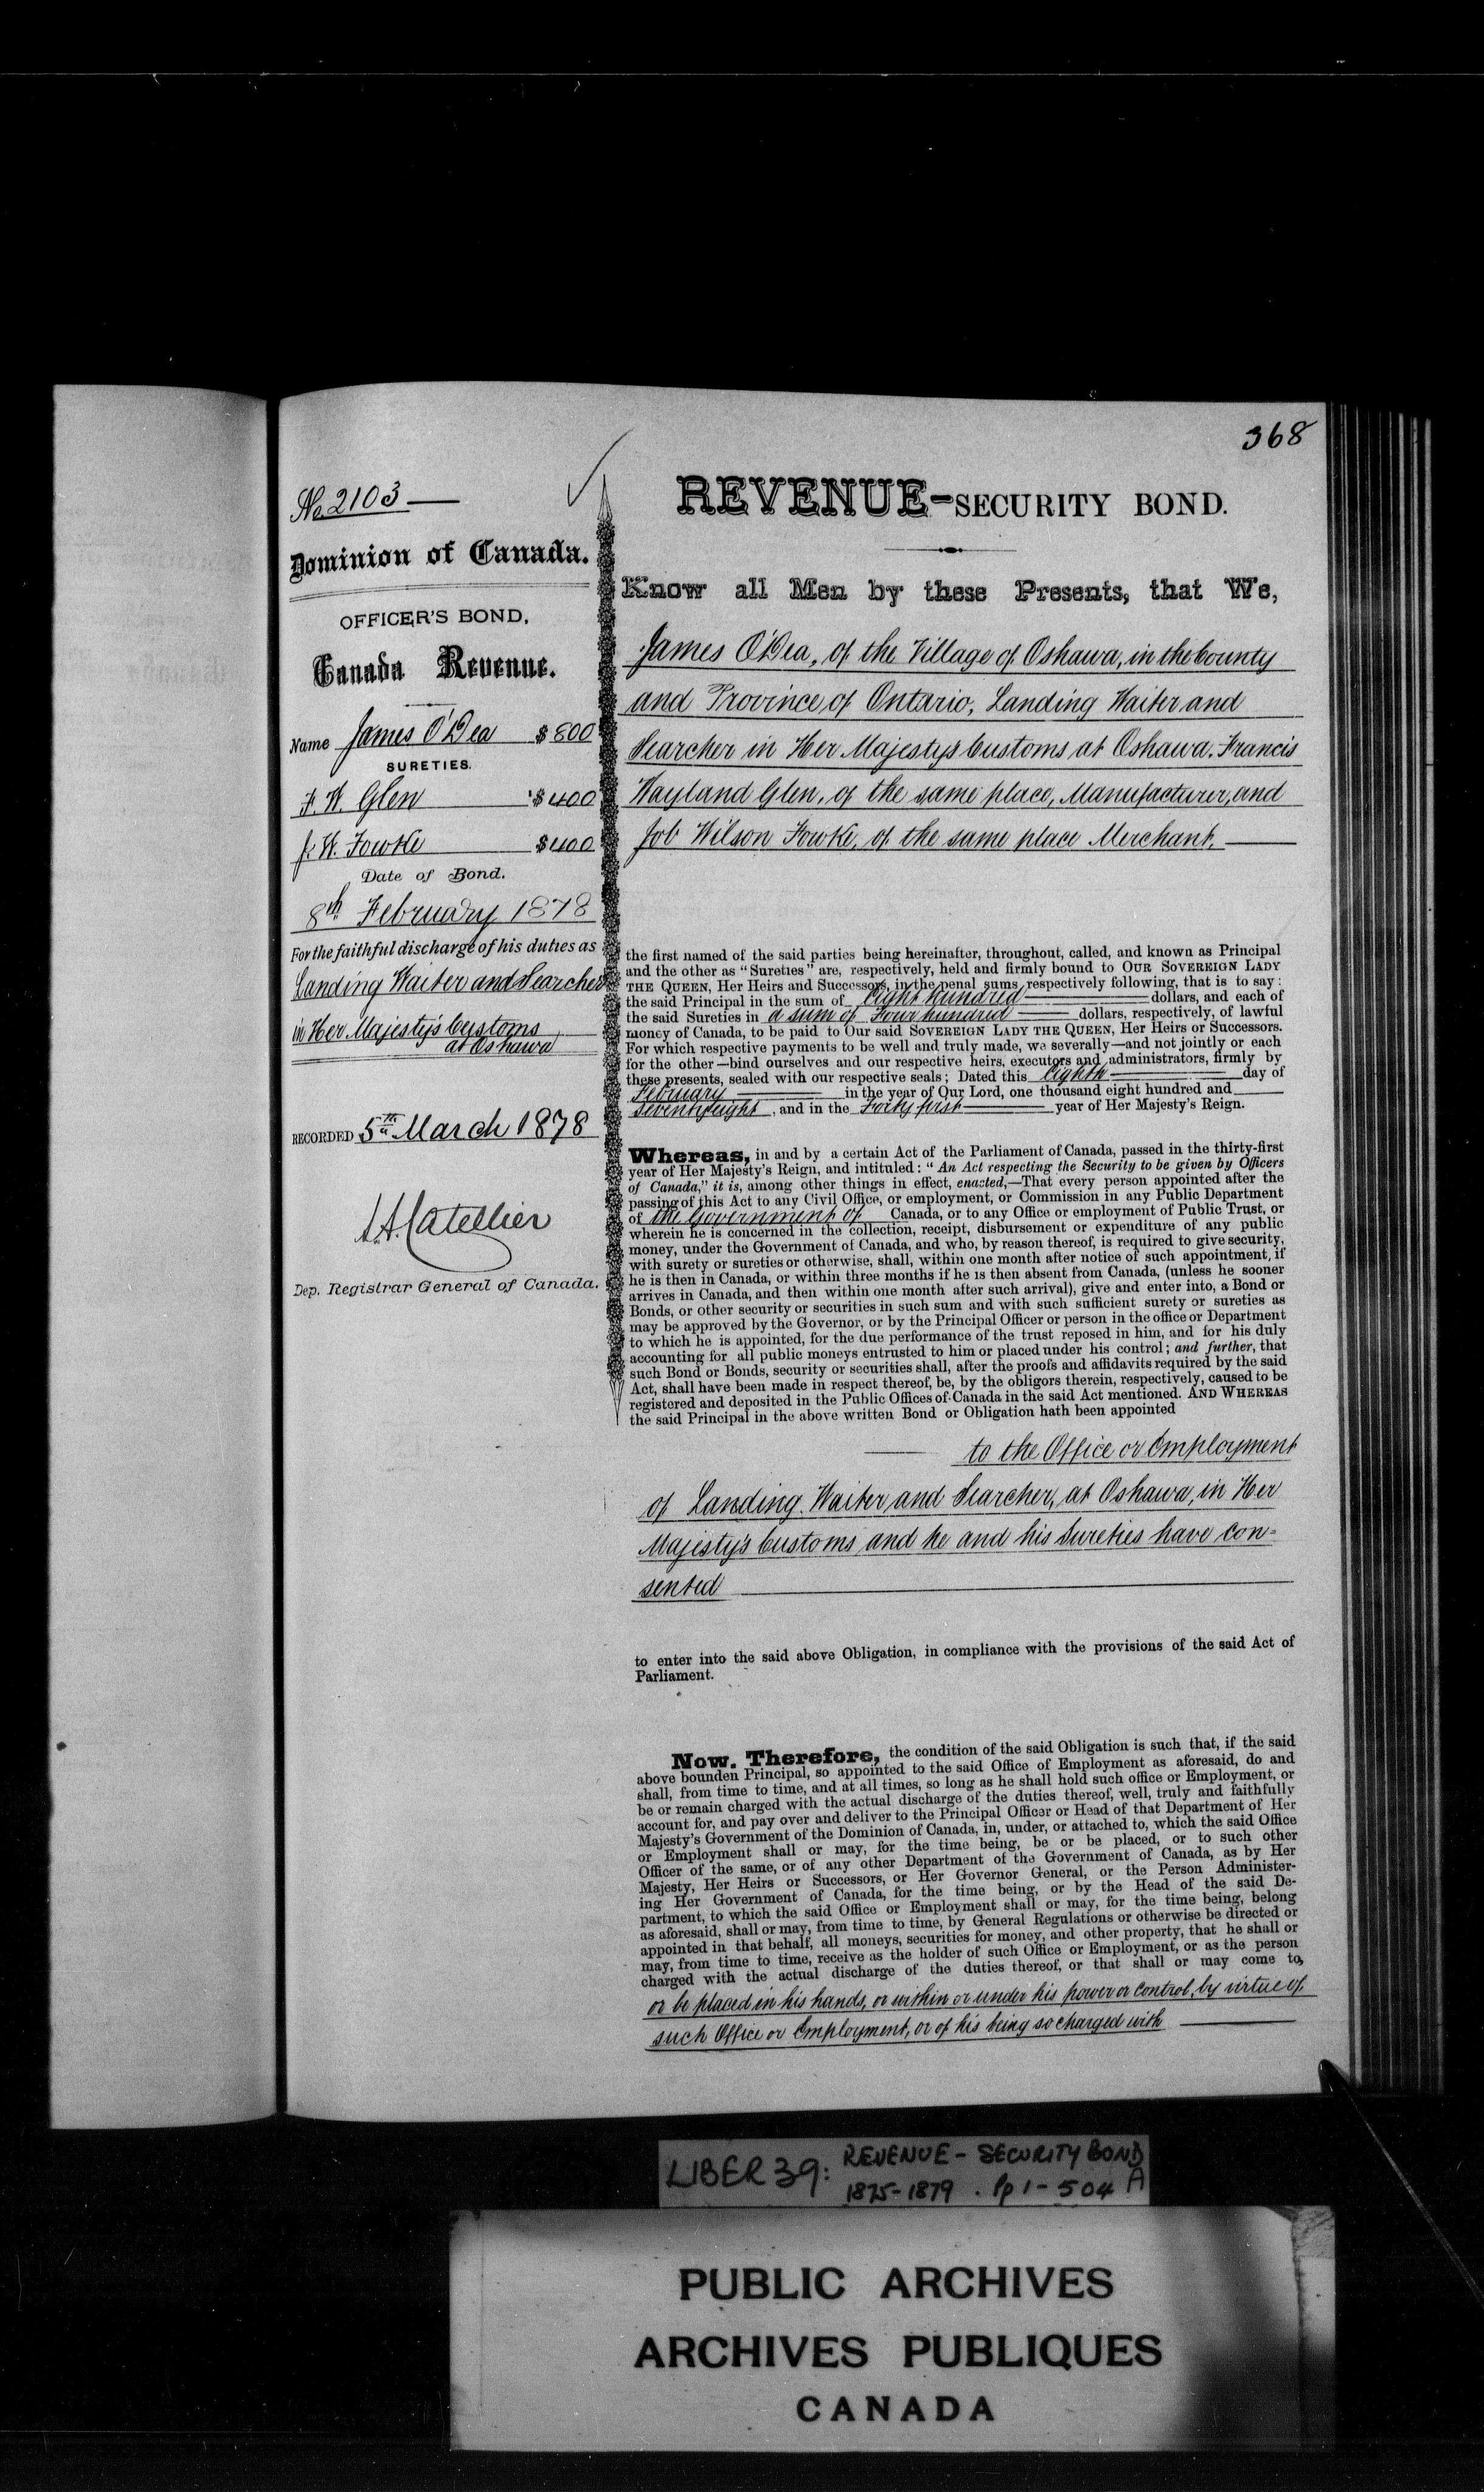 368
No 2103
Dominion of Canada.
OFFICER'S BOND,
Canada Revenue.
Name James O'Dea $800
SURETIES.
F. W. Glen $400
J. W. Fowke $400
Date of Bond.
8th February 1878
For the faithful discharge of his duties as
Landing Waiter and Searcher
in Her Majesty's Customs
at Oshawa
RECORDED 5th March 1878
L.A. Catellier
Dep. Registrar General of Canada.
REVENUE-SECURITY BOND.
Know all Men by these Presents, that We,
James O'Dea, of the Village of Oshawa, in the County
and Province of Ontario, Landing Waiter and
Searcher in Her Majesty's Customs at Oshawa. Francis
Wayland Glen, of the same place, Manufacturer, and
Job Wilson Fowke, of the same place Merchant,
the first named of the said parties being hereinafter, throughout, called, and known as Principal
and the other as "Sureties" are, respectively, held and firmly bound to OUR SOVEREIGN LADY
THE QUEEN, Her Heirs and Successors, in the penal sums respectively following, that is to say:
the said Principal in the sum of Eight hundred dollars, and each of
the said Sureties in a sum of Four hundred dollars, respectively, of lawful
money of Canada, to be paid to Our said SOVEREIGN LADY THE QUEEN, Her Heirs or Successors.
For which respective payments to be well and truly made, we severally—and not jointly or each
for the other—bind ourselves and our respective heirs, executors and administrators, firmly by
these presents, sealed with our respective seals; Dated this Eighth day of
February in the year of Our Lord, one thousand eight hundred and
seventy eight, and in the Forty first year of Her Majesty's Reign.
Whereas, in and by a certain Act of the Parliament of Canada, passed in the thirty-first
year of Her Majesty's Reign, and intituled: "An Act respecting the Security to be given by Officers
of Canada," it is, among other things in effect, enacted,—That every person appointed after the
passing of this Act to any Civil Office, or employment, or Commission in any Public Department
of the Government of Canada, or to any Office or employment of Public Trust, or
wherein he is concerned in the collection, receipt, disbursement or expenditure of any public
money, under the Government of Canada, and who, by reason thereof, is required to give security,
with surety or sureties or otherwise, shall, within one month after notice of such appointment, if
he is then in Canada, or within three months if he is then absent from Canada, (unless he sooner
arrives in Canada, and then within one month after such arrival), give and enter into, a Bond or
Bonds, or other security or securities in such sum and with such sufficient surety or sureties as
may be approved by the Governor, or by the Principal Officer or person in the office or Department
to which he is appointed, for the due performance of the trust reposed in him, and for his duly
accounting for all public moneys entrusted to him or placed under his control; and further, that
such Bond or Bonds, security or securities shall, after the proofs and affidavits required by the said
Act, shall have been made in respect thereof, be, by the obligors therein, respectively, caused to be
registered and deposited in the Public Offices of Canada in the said Act mentioned. AND WHEREAS
the said Principal in the above written Bond or Obligation hath been appointed
to the Office or Employment
of Landing Waiter and Searcher, at Oshawa, in Her
Majesty's Customs and he and his Sureties have con=
sented
to enter into the said above Obligation, in compliance with the provisions of the said Act of
Parliament.
Now. Therefore, the condition of the said Obligation is such that, if the said
above bounden Principal, so appointed to the said Office of Employment as aforesaid, do and
shall, from time to time, and at all times, so long as he shall hold such office or Employment, or
be or remain charged with the actual discharge of the duties thereof, well, truly and faithfully
account for, and pay over and deliver to the Principal Officer or Head of that Department of Her
Majesty's Government of the Dominion of Canada, in, under, or attached to, which the said Office
or Employment shall or may, for the time being, be or be placed, or to such other
Officer of the same, or of any other Department of the Government of Canada, as by Her
Majesty, Her Heirs or Successors, or Her Governor General, or the Person Administer-
ing Her Government of Canada, for the time being, or by the Head of the said De-
partment, to which the said Office or Employment shall or may, for the time being, belong
as aforesaid, shall or may, from time to time, by General Regulations or otherwise be directed or
appointed in that behalf, all moneys, securities for money, and other property, that he shall or
may, from time to time, receive as the holder of such Office or Employment, or as the person
charged with the actual discharge of the duties thereof, or that shall or may come to,
or be placed in his hands, or within or under his power or control, by virtue of
such Office or Employment, or of his being so charged with
LIBER 39: REVENUE - SECURITY BOND
1875-1879 . Pp 1 - 504 A
PUBLIC ARCHIVES
ARCHIVES PUBLIQUES
CANADA